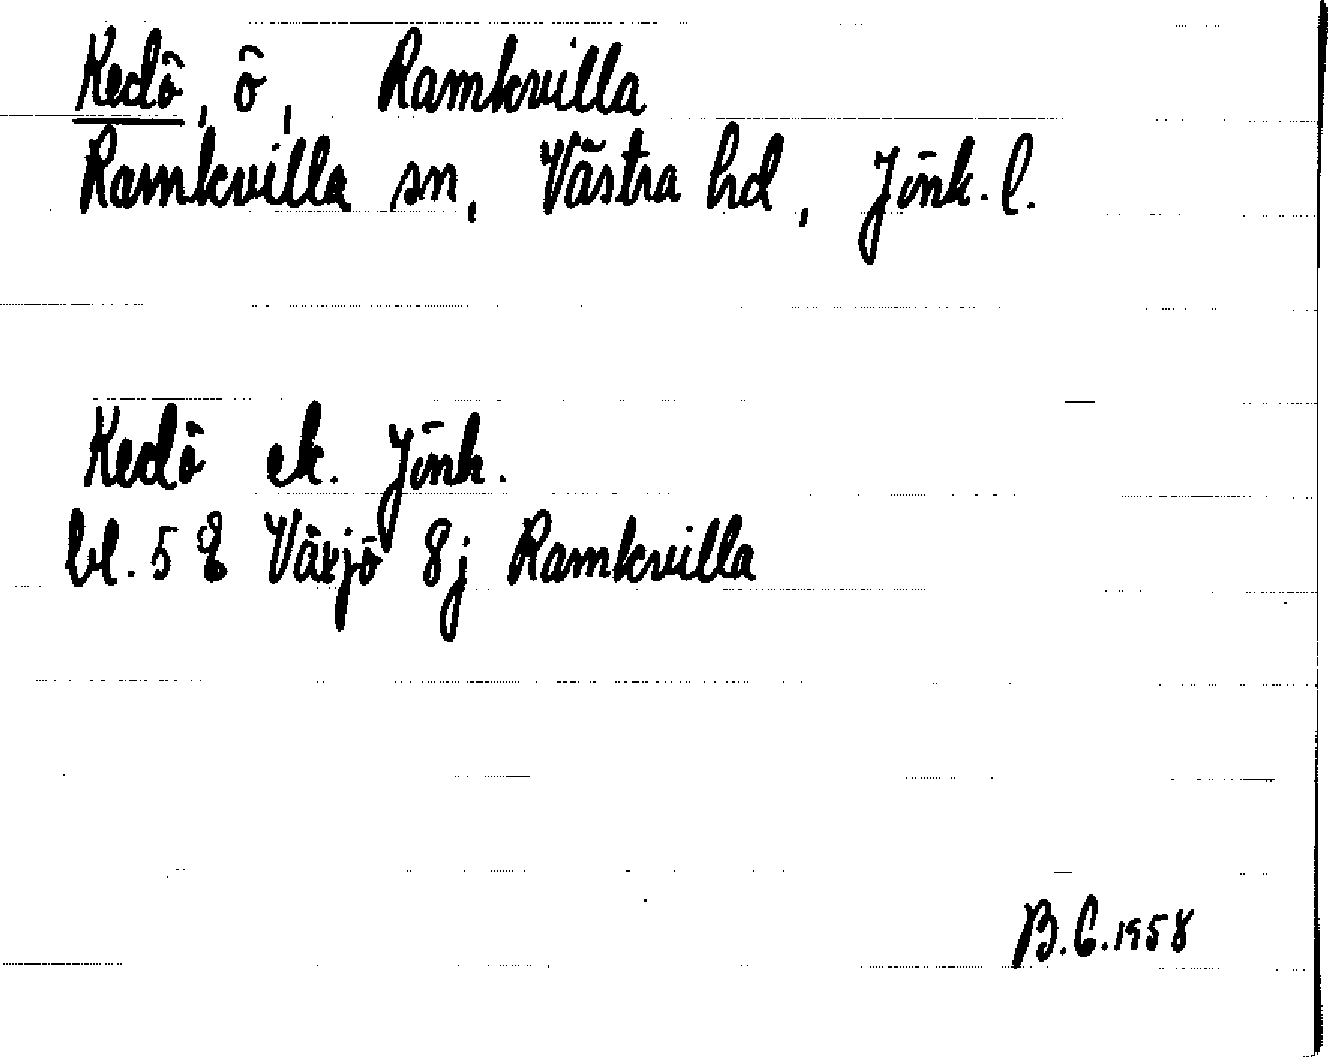 Kedö, ö, Ramkvilla
Ramkvilla sn, Västra hd, Jönk. l.
Kedö ek. Jönk.
bl. 5 E Växjö 8j Ramkvilla
B.C. 1958